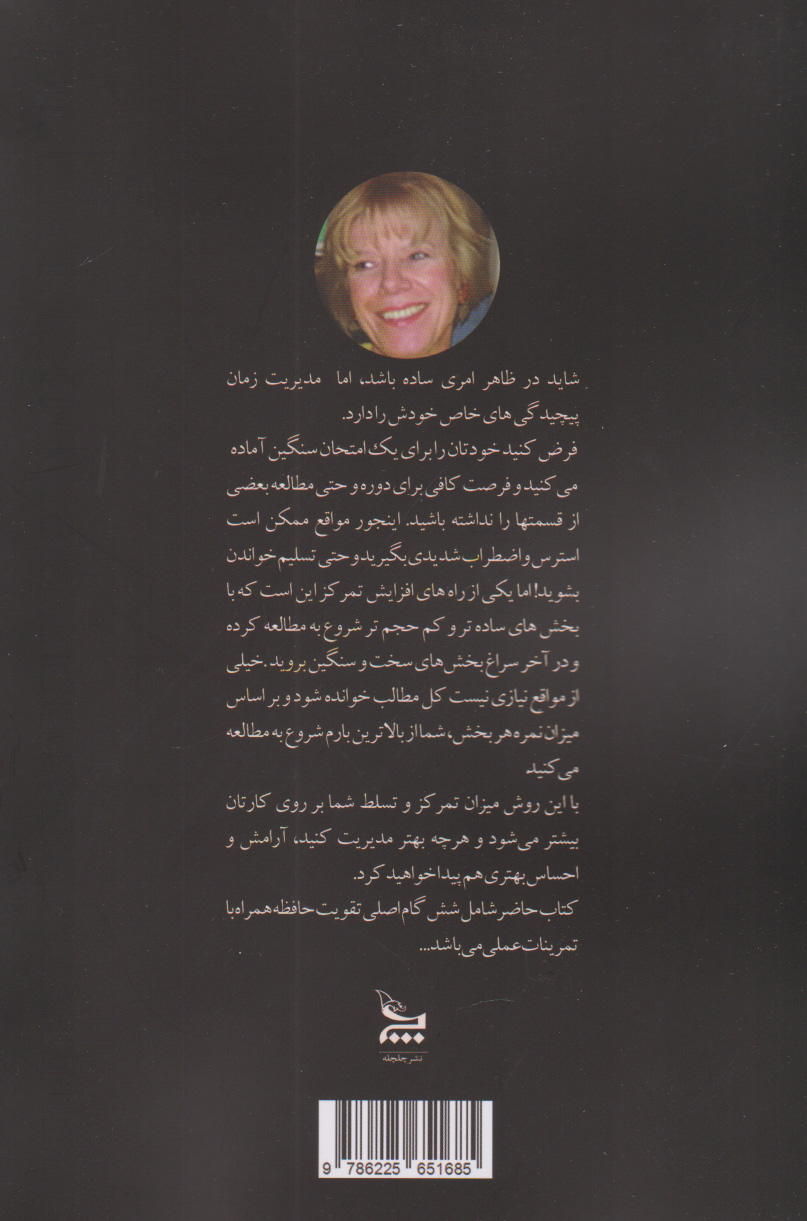 شاید در ظاهر امری ساده باشد، اما مدیریت زمان
پیچیدگی های خاص خودش را دارد.
فرض کنید خودتان را برای یک امتحان سنگین آماده
می کنید و فرصت کافی برای دوره و حتی مطالعه بعضی
از قسمتها را نداشته باشید. اینجور مواقع ممکن است
استرس و اضطراب شدیدی بگیرید و حتی تسلیم خواندن
بشوید! اما یکی از راه های افزایش تمرکز این است که با
بخش های ساده تر و کم حجم تر شروع به مطالعه کرده
و در آخر سراغ بخش های سخت و سنگین بروید. خیلی
از مواقع نیازی نیست کل مطالب خوانده شود و بر اساس
میزان نمره هر بخش، شما از بالاترین بارم شروع به مطالعه
می کنید.
با این روش میزان تمرکز و تسلط شما بر روی کارتان
بیشتر می‌شود و هرچه بهتر مدیریت کنید، آرامش و
احساس بهتری هم پیدا خواهید کرد.
کتاب حاضر شامل شش گام اصلی تقویت حافظه همراه با
تمرینات عملی می باشد...
نشر چلچله
9 786225 651685